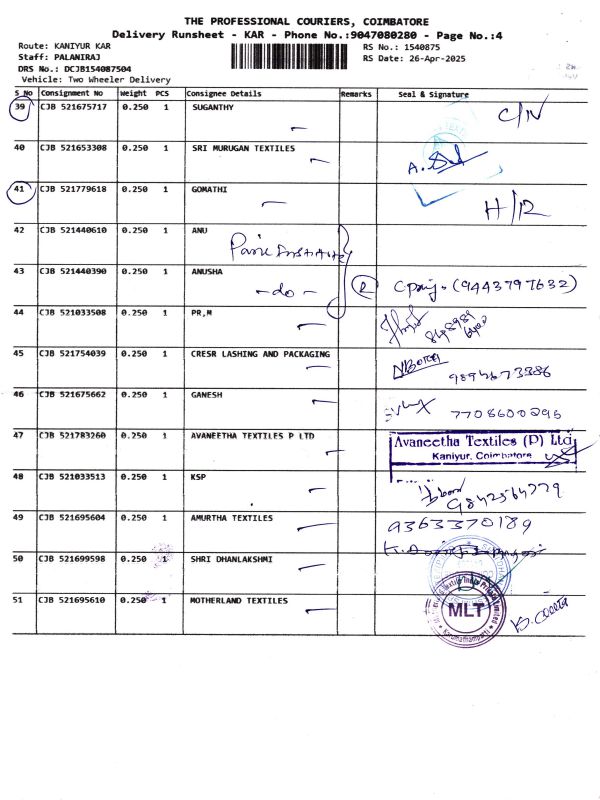 THE PROFESSIONAL COURIERS, COIMBATORE
Delivery Runsheet - KAR - Phone No.:9047080280 - Page No.:4
Route: KANIYUR KAR
RS No.: 1540875
Staff: PALANIRAJ
RS Date: 26-Apr-2025
DRS No.: DCJB154087504
Vehicle: Two Wheeler Delivery
S No Consignment No Weight PCS Consignee Details Remarks Seal & Signature
39 CJB 521675717 0.250 1 SUGANTHY C/N
40 CJB 521653308 0.250 1 SRI MURUGAN TEXTILES
41 CJB 521779618 0.250 1 GOMATHI H/R
42 CJB 521440610 0.250 1 ANU
43 CJB 521440390 0.250 1 ANUSHA (9443797632)
-do-
44 CJB 521033508 0.250 1 PR,M
45 CJB 521754039 0.250 1 CRESR LASHING AND PACKAGING
9894673386
46 CJB 521675662 0.250 1 GANESH
7708600295
47 CJB 521783260 0.250 1 AVANEETHA TEXTILES P LTD
Avaneetha Textiles (P) Ltd
Kaniyur, Coimbatore
48 CJB 521033513 0.250 1 KSP
9842564779
49 CJB 521695604 0.250 1 AMURTHA TEXTILES 9363370189
50 CJB 521699598 0.250 1 SHRI DHANLAKSHMI
51 CJB 521695610 0.250 1 MOTHERLAND TEXTILES
MLT